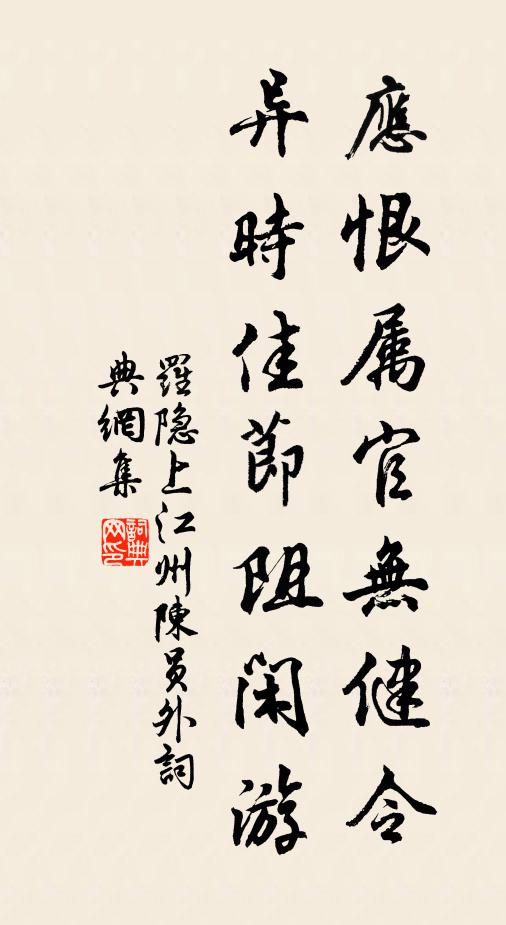 應恨属官無健令
异時佳節阻閑游
羅隐上江州陳員外詞
典網集
詞典网印